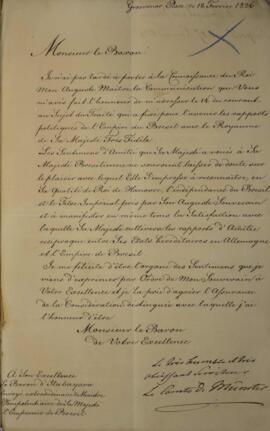 Grosvenor Place ce 18 Février 1826
Monsieur le Baron
Je n'ai pas tardé à porter à la Connaissance du Roi
Mon Auguste Maître, la Communication que Vous
m'avés fait l'honneur de m'adresser le 14 du courant
au Sujet du Traité qui a fixé pour l'avenir les rapports
politiques de l'Empire du Bresil avec le Royaume
de Sa Majesté Très Fidèle
Les Sentimens d'Amitié que Sa Majesté a voués à Sa
Majesté Bresilienne ne sauroient laisser de doute sur
le plaisir avec lequel Elle s'empresse à reconnaître, en
Sa Qualité de Roi de Hanovre, l'indépendance du Bresil
et le Titre Impérial pris par Son Auguste Souverain
et à manifester en même tems la Satisfaction avec
laquelle Sa Majesté cultivera les rapports d'Amitié
réciproque entre Ses Etats héréditaires en Allemagne
et l'Empire de Bresil.
Je me félicite d'être l'organe des Sentimens que je
viens d'exprimer par Ordre de Mon Souverain à
Votre Excellence et je la prie d'agréer l'Assurance
de la Considération distinguée avec laquelle j'ai
l'honneur d'être
Monsieur le Baron
de Votre Excellence
Le très humble et très
obéissant Serviteur
Le Comte de Münster
A Son Excellence
Le Baron d'Itabayana
Envoyé extraordinaire et Ministre
Plenipotentiaire de Sa Majesté
l'Empereur du Bresil